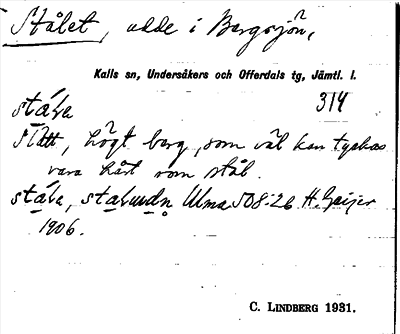 Stålet, udde i Bergsjön,
Kalls sn, Undersåkers och Offerdals tg, Jämtl. l.
314
stá̱ɫa
Slätt, högt berg, som väl kan tyckas
vara hårt som stål.
Ulma 508:26 H. Geijer
1906.
C. LINDBERG 1931.